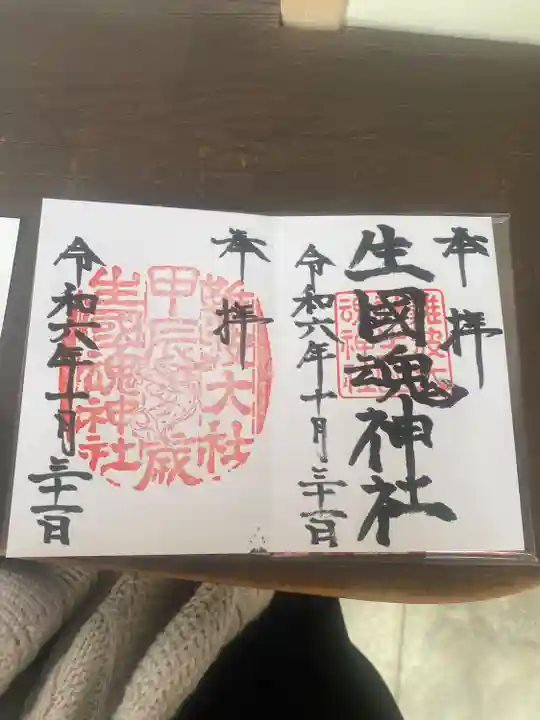 奉拝
生國魂神社
難波大社
生國魂神社
令和六年十月三十一日
奉拝
難波大社
甲辰歳
生國魂神社
令和六年十月三十一日